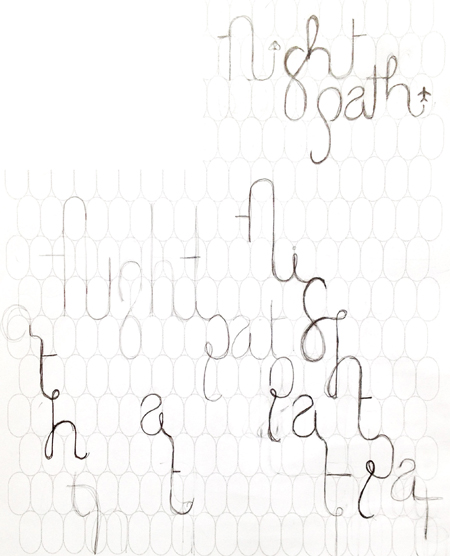 flight
path
flight
flight
pat
at
h
at
pat
pat